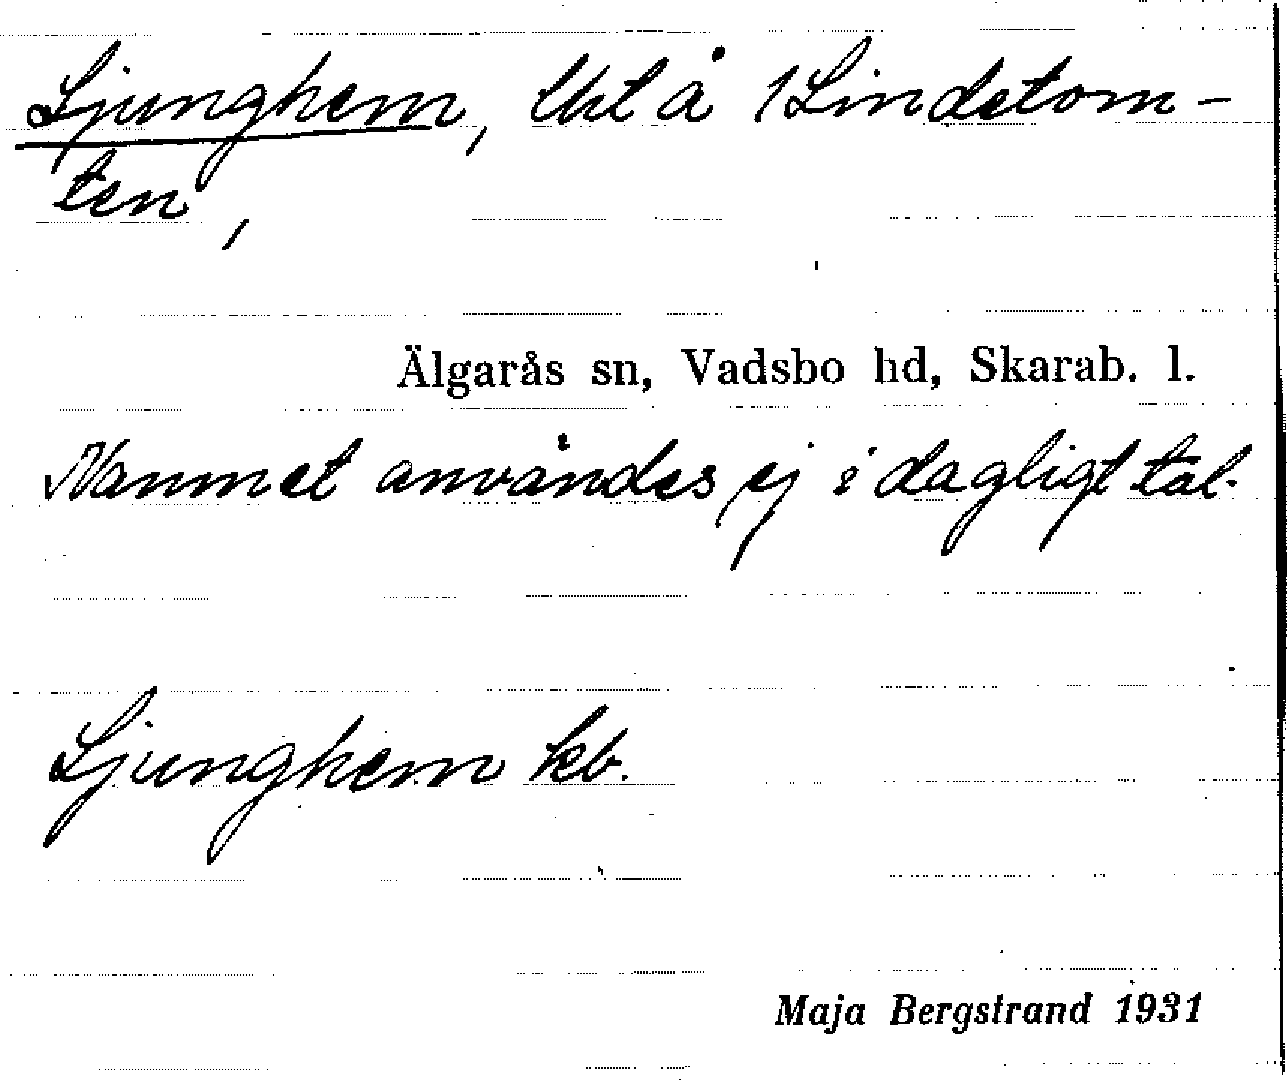 Ljunghem, Utl å 1 Lindetom-
ten,
Älgarås sn, Vadsbo hd, Skarab. l.
Namnet användes ej i dagligt tal.
Ljunghem kb.
Maja Bergstrand 1931